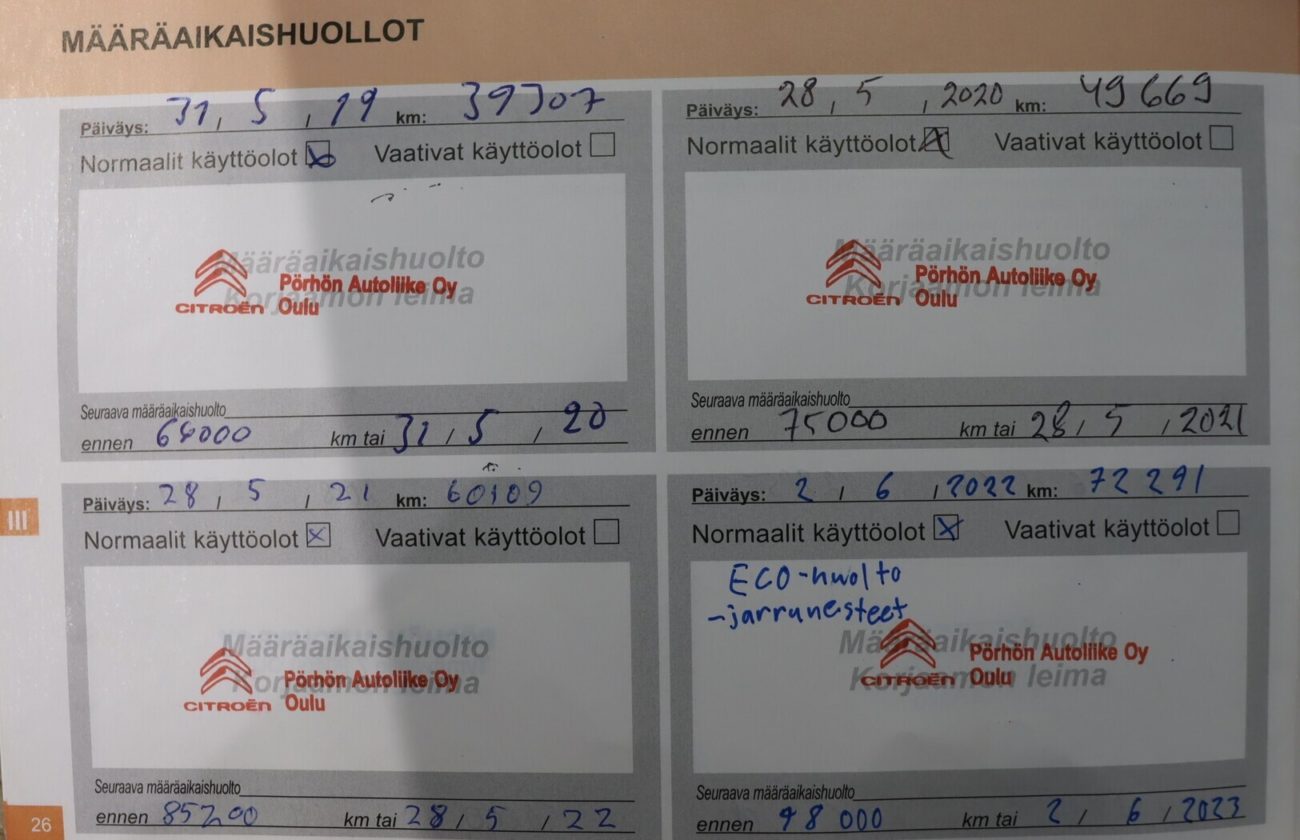 MÄÄRÄAIKAISHUOLLOT
Päiväys: 31, 5, 19 km: 39307
Normaalit käyttöolot Vaativat käyttöolot
Määräaikaishuolto
Korjaamon leima
Pörhön Autoliike Oy
CITROËN Oulu
Seuraava määräaikaishuolto
ennen 64000 km tai 31, 5, 20
Päiväys: 28, 5, 2020 km: 49669
Normaalit käyttöolot Vaativat käyttöolot
Määräaikaishuolto
Korjaamon leima
Pörhön Autoliike Oy
CITROËN Oulu
Seuraava määräaikaishuolto
ennen 75000 km tai 28, 5, 2021
III
Päiväys: 28, 5, 21 km: 60109
Normaalit käyttöolot Vaativat käyttöolot
Määräaikaishuolto
Korjaamon leima
Pörhön Autoliike Oy
CITROËN Oulu
Seuraava määräaikaishuolto
ennen 85200 km tai 28, 5, 22
Päiväys: 2, 6, 2022 km: 72291
Normaalit käyttöolot Vaativat käyttöolot
ECO-huolto
-jarrunesteet
Määräaikaishuolto
Korjaamon leima
Pörhön Autoliike Oy
CITROËN Oulu
Seuraava määräaikaishuolto
ennen 98000 km tai 2, 6, 2023
26